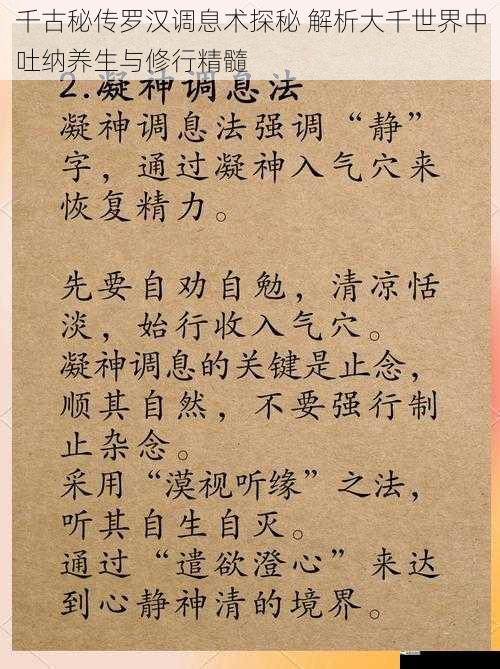 千古秘传罗汉调息术探秘 解析大千世界中
吐纳养生与修行精髓
2.凝神调息法
凝神调息法强调“静”
字，通过凝神入气穴来
恢复精力。
先要自劝自勉，清凉恬
淡，始行收入气穴。
凝神调息的关键是止念，
顺其自然，不要强行制
止杂念。
采用“漠视听缘”之法，
听其自生自灭。
通过“遣欲澄心”来达
到心静神清的境界。